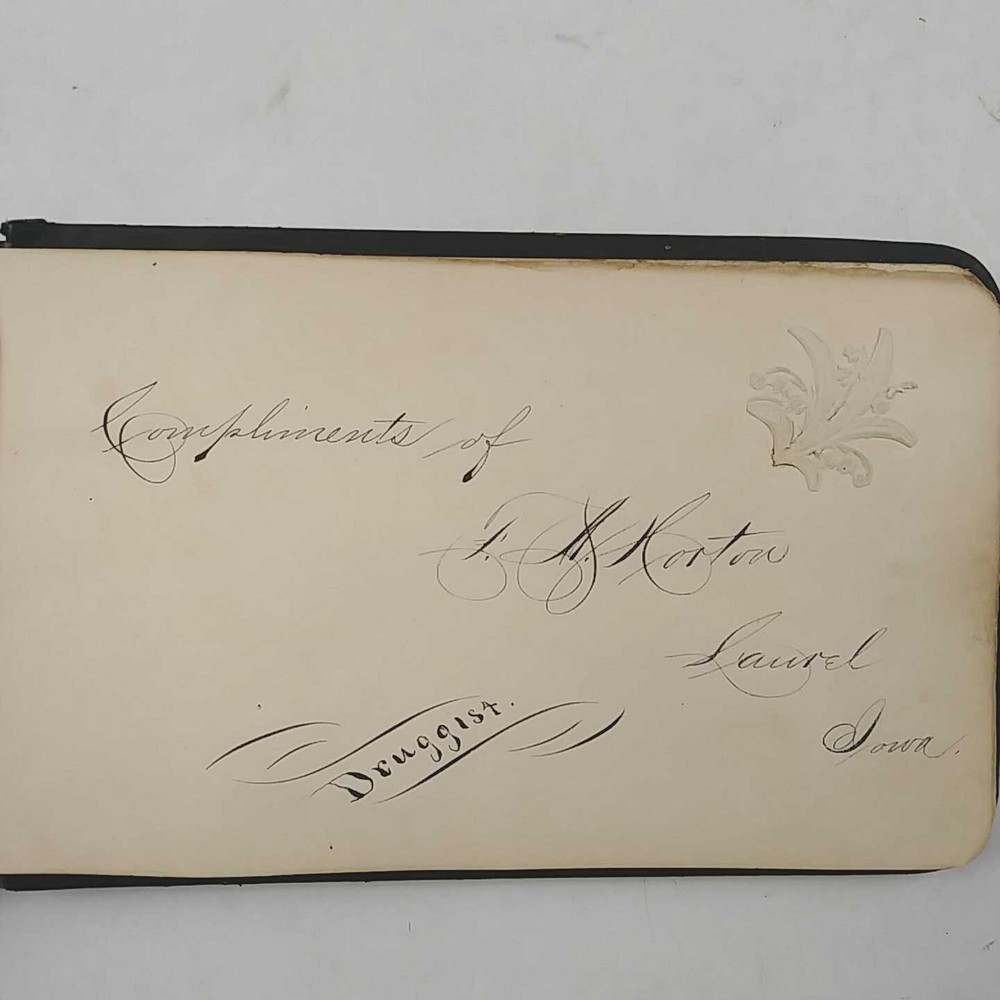 Compliments of
F. M. Horton
Laurel
Iowa.
Druggist.